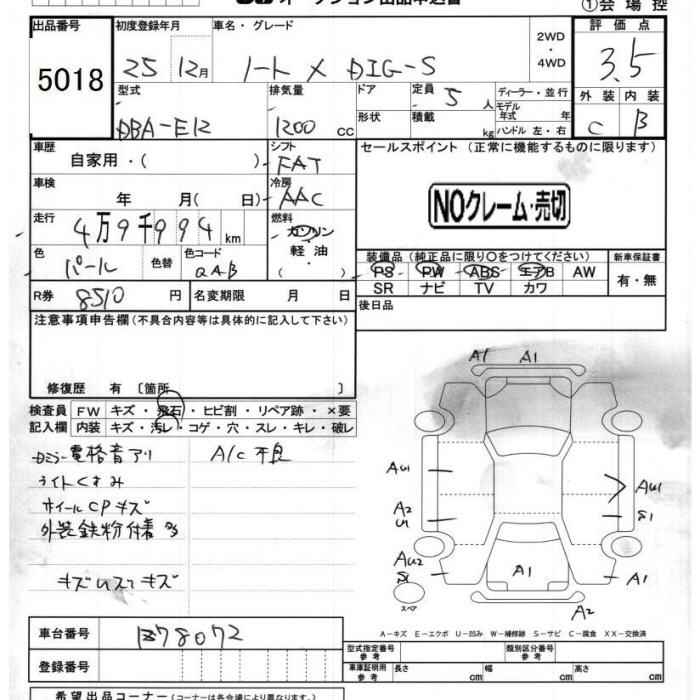 オークション出品申込書
①会場控
出品番号
5018
初度登録年月
25 12月
車名・グレード
ノート X DIG-S
2WD
・
4WD
評価点
3.5
外装 内装
C B
型式
DBA-E12
排気量
1200 cc
ドア
形状
定員 5 人
積載 kg
ディーラー・並行
モデル年式 年
ハンドル 左・右
車歴
自家用・( )
シフト
FAT
セールスポイント (正常に機能するものに限ります)
NOクレーム・売切
車検
年 月( 日)
冷房
AAC
走行
4万9千994km
燃料
ガソリン
・
軽油
( )
色
パール
色替
色コード
QAB
装備品 (純正品に限り〇をつけてください)
PS PW ABS エアB AW
SR ナビ TV カワ
新車保証書
有・無
R券 8510 円
名変期限 月 日
後日品
注意事項申告欄(不具合内容等は具体的に記入して下さい)
修復歴 有〔箇所 〕
検査員記入欄
FW キズ・飛石・ヒビ割・リペア跡・×要
内装 キズ・汚レ・コゲ・穴・スレ・キレ・破レ
電格音アリ
A/C不良
ライトくすみ
ホイールCPキズ
外装鉄粉付着多
A1 A1
AU1
AU1
A2
U1
S1
AU2
S1
A1
A1
A2
スペア
A-キズ E-エクボ U-凹み W-補修跡 S-サビ C-腐食 XX-交換済
車台番号
登録番号
型式指定番号
参考
類別区分番号
参考
車庫証明用
参考
長さ cm
幅 cm
高さ cm
希望出品コーナー(コーナーは各会場により異なります。)